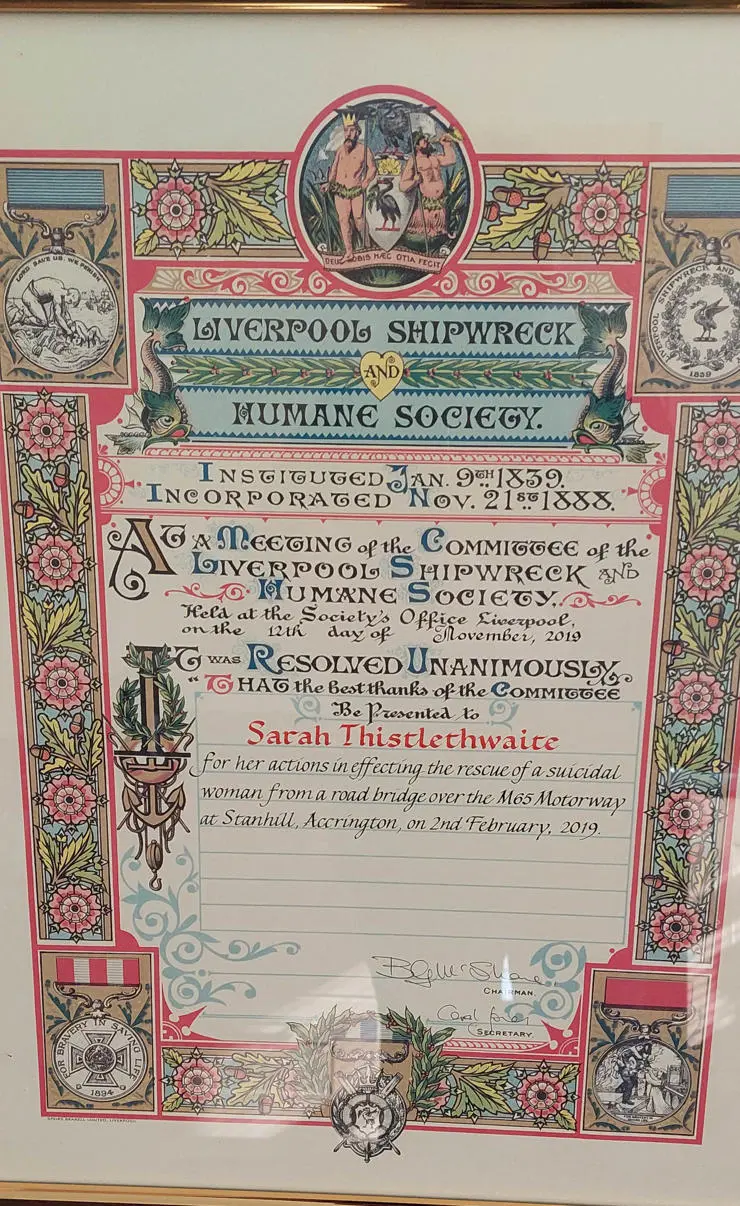 DEUS NOBIS HÆC OTIA FECIT
LORD SAVE US, WE PERISH
LIVERPOOL SHIPWRECK AND
1839
LIVERPOOL SHIPWRECK
AND
HUMANE SOCIETY.
INSTITUTED JAN. 9TH 1839.
INCORPORATED NOV. 21ST 1888.
AT A MEETING of the COMMITTEE of the
LIVERPOOL SHIPWRECK AND
HUMANE SOCIETY,
Held at the Society's Office Liverpool,
on the 12th day of November, 2019
IT WAS RESOLVED UNANIMOUSLY,
"THAT the best thanks of the COMMITTEE
Be Presented to
Sarah Thistlethwaite
for her actions in effecting the rescue of a suicidal
woman from a road bridge over the M65 Motorway
at Stanhill, Accrington, on 2nd February, 2019.
CHAIRMAN.
SECRETARY.
FOR BRAVERY IN SAVING LIFE
1894